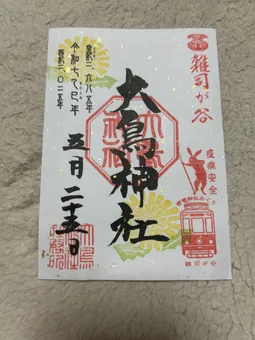 雑司が谷
疫病安全
都電神社めぐり
雑司が谷
大鳥神社
皇紀二、六八五年
令和七乙巳年
西暦二、〇二五年
五月二十五日